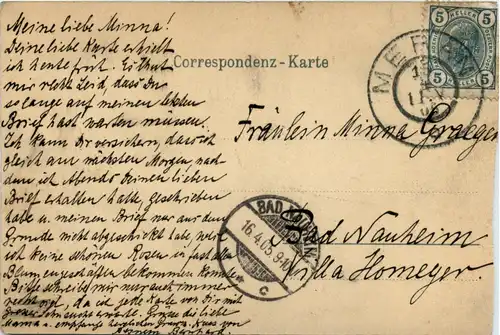 Meine liebe Minna!
Deine liebe Karte erhielt
ich heute früh. Es thut
mir recht Leid, dass Du
so lange auf meinen letzten
Brief hast warten müssen.
Ich kann Dir versichern, dass ich
gleich am nächsten Morgen, nach
dem ich Abends Deinen lieben
Brief erhalten habe, geschrieben
habe u. meinen Brief nur aus dem
Grunde nicht abgeschickt habe, weil
ich keine schönen Rosen in fast
Blumengeschäften bekommen konnte.
Bitte schreibe mir nur auch immer
recht oft, da ich jede Karte von Dir mit
Grüsse die liebe
Mama u. empfange Kuss von
Deinem Bernhard.
Correspondenz-Karte
5 HELLER 5
5 5
MERAN
Fräulein Minna Graeger
Bad Nauheim
Villa Homeyer
BAD NAUHEIM
16.4.05.
c